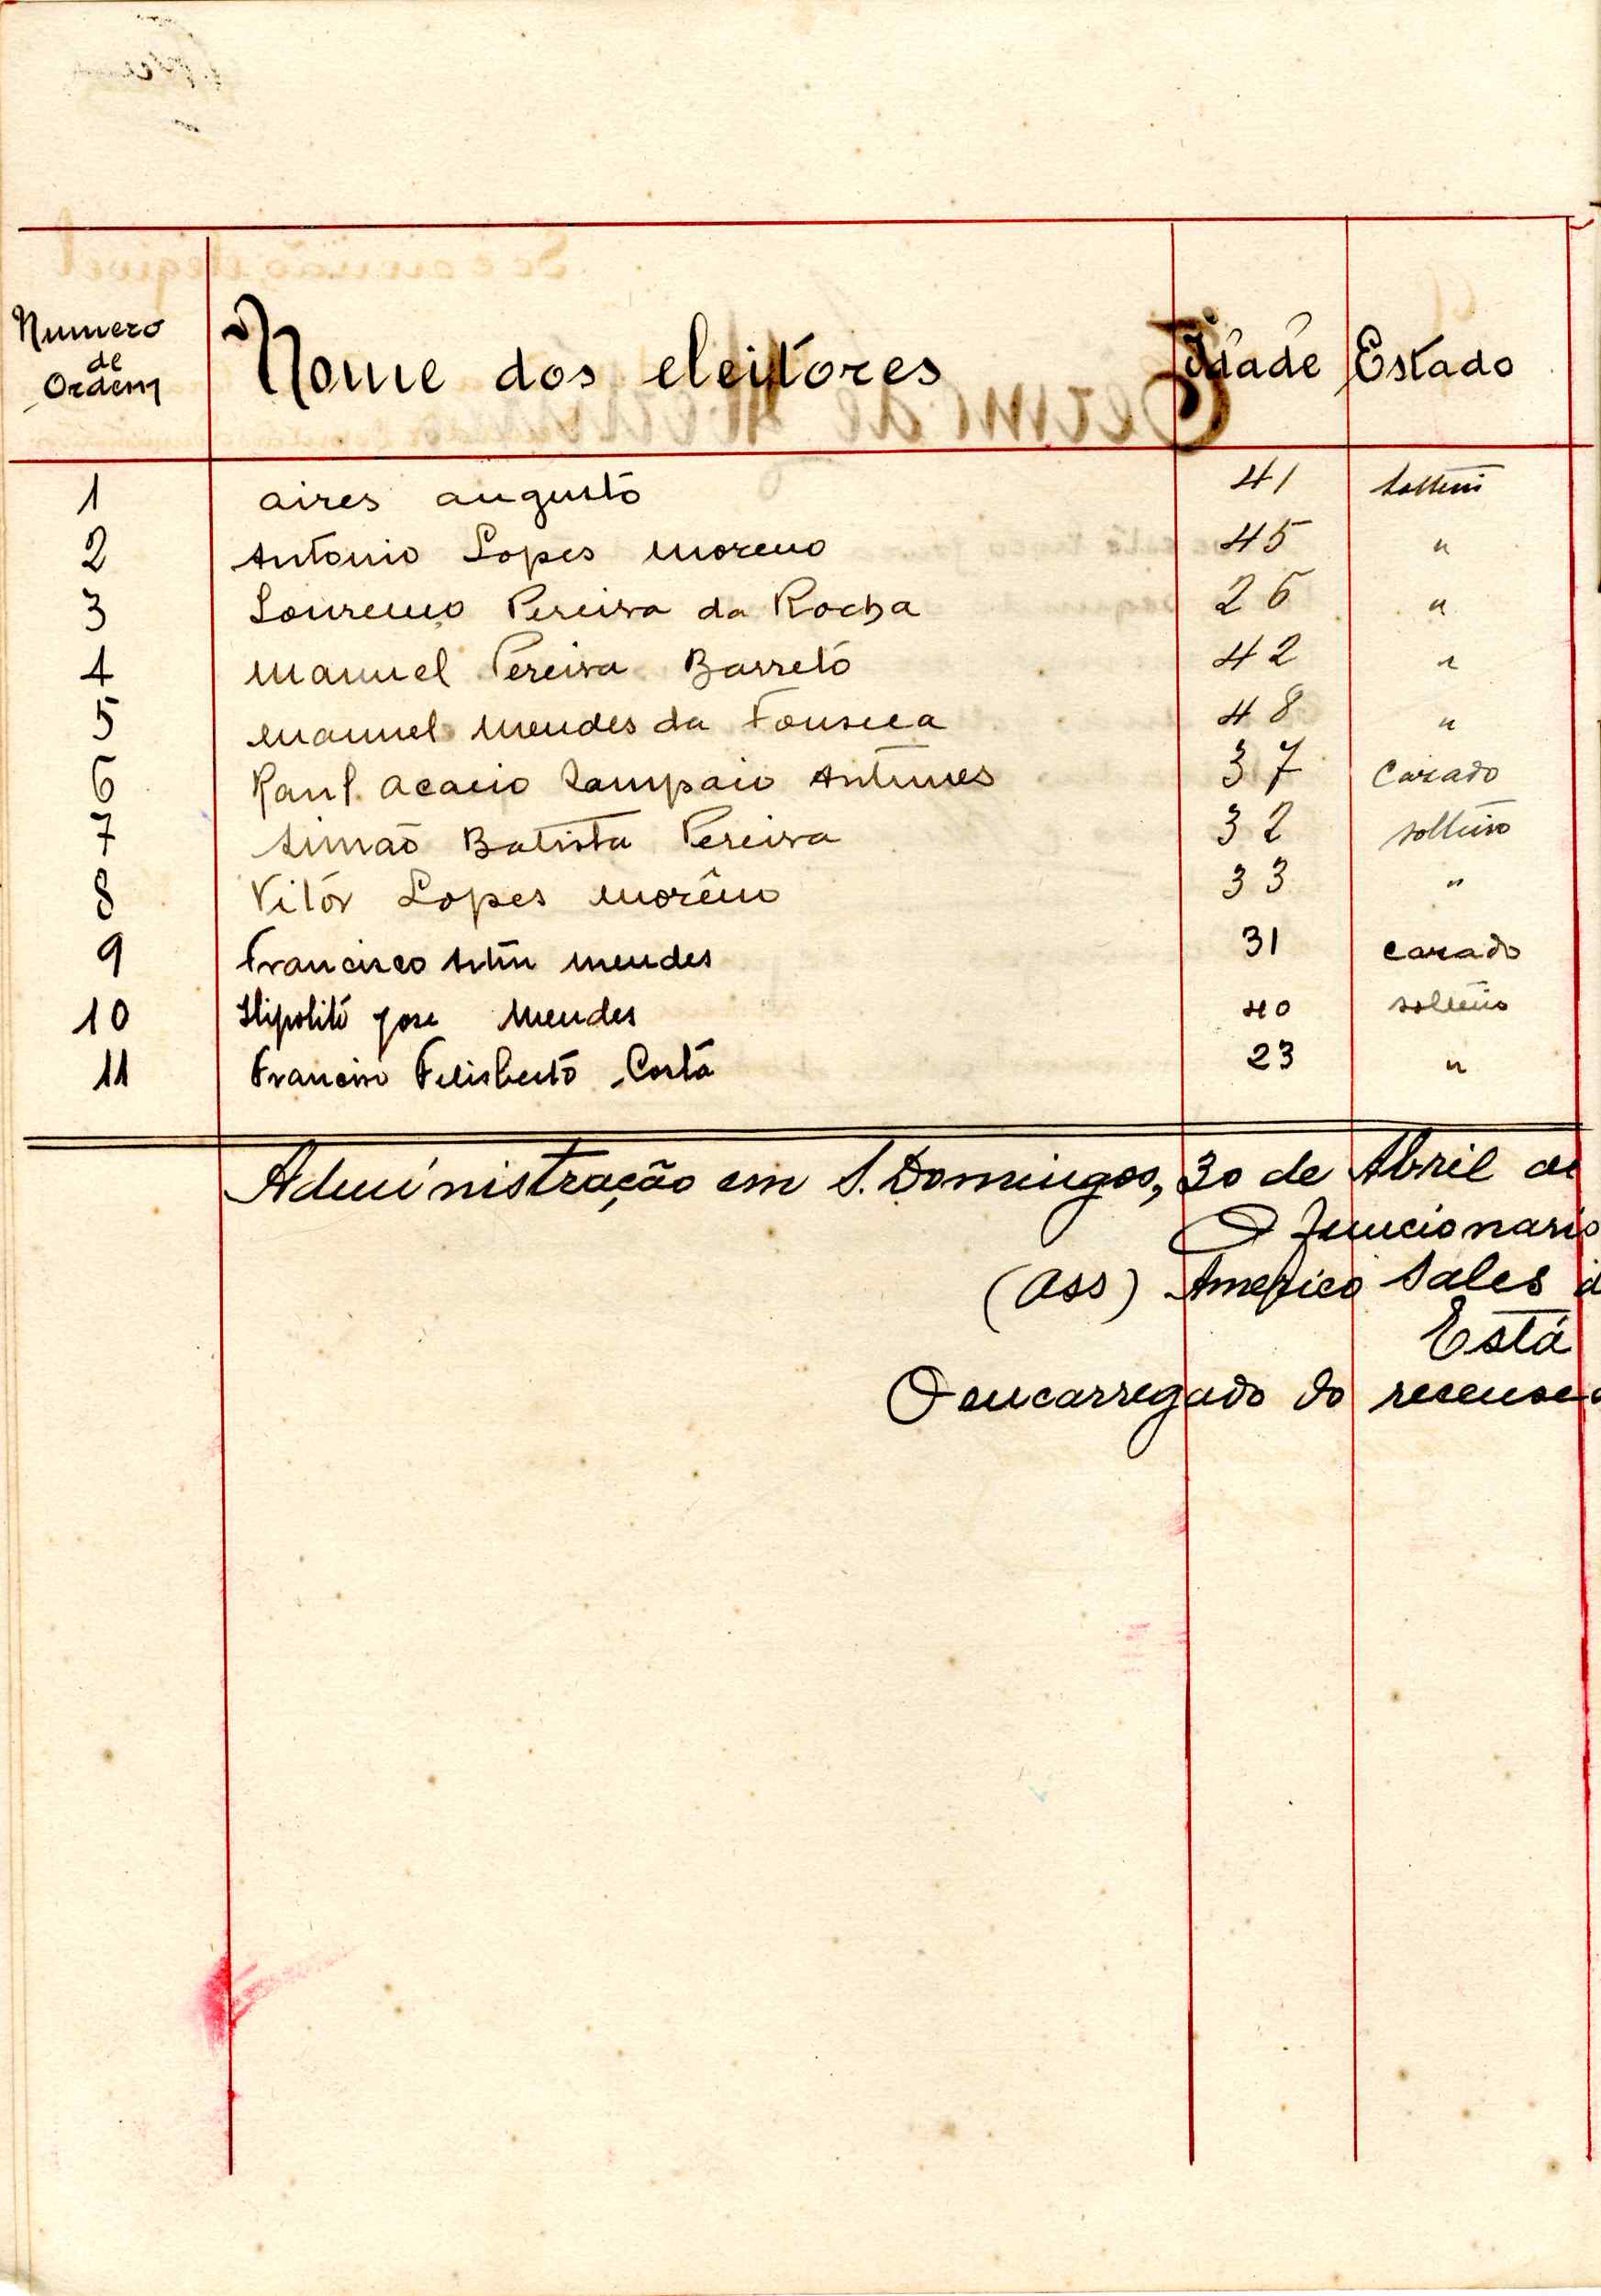 Numero de Ordem Nome dos eleitores Idade Estado
1 Aires Augusto 41 Solteiro
2 Antonio Lopes Moreno 45 "
3 Lourenço Pereira da Rocha 26 "
4 Manuel Pereira Barreto 42 "
5 Manuel Mendes da Fonseca 48 "
6 Raul Acacio Sampaio Antunes 37 Casado
7 Simão Batista Pereira 32 solteiro
8 Vitór Lopes Morêno 33 "
9 Francisco Mendes 31 casado
10 Hipolito José Mendes 40 solteiro
11 Francisco Felisberto Costa 23 "
Administração em S. Domingos, 30 de Abril de
O funcionario
(Ass) Americo Sales
Está
O encarregado do recensea